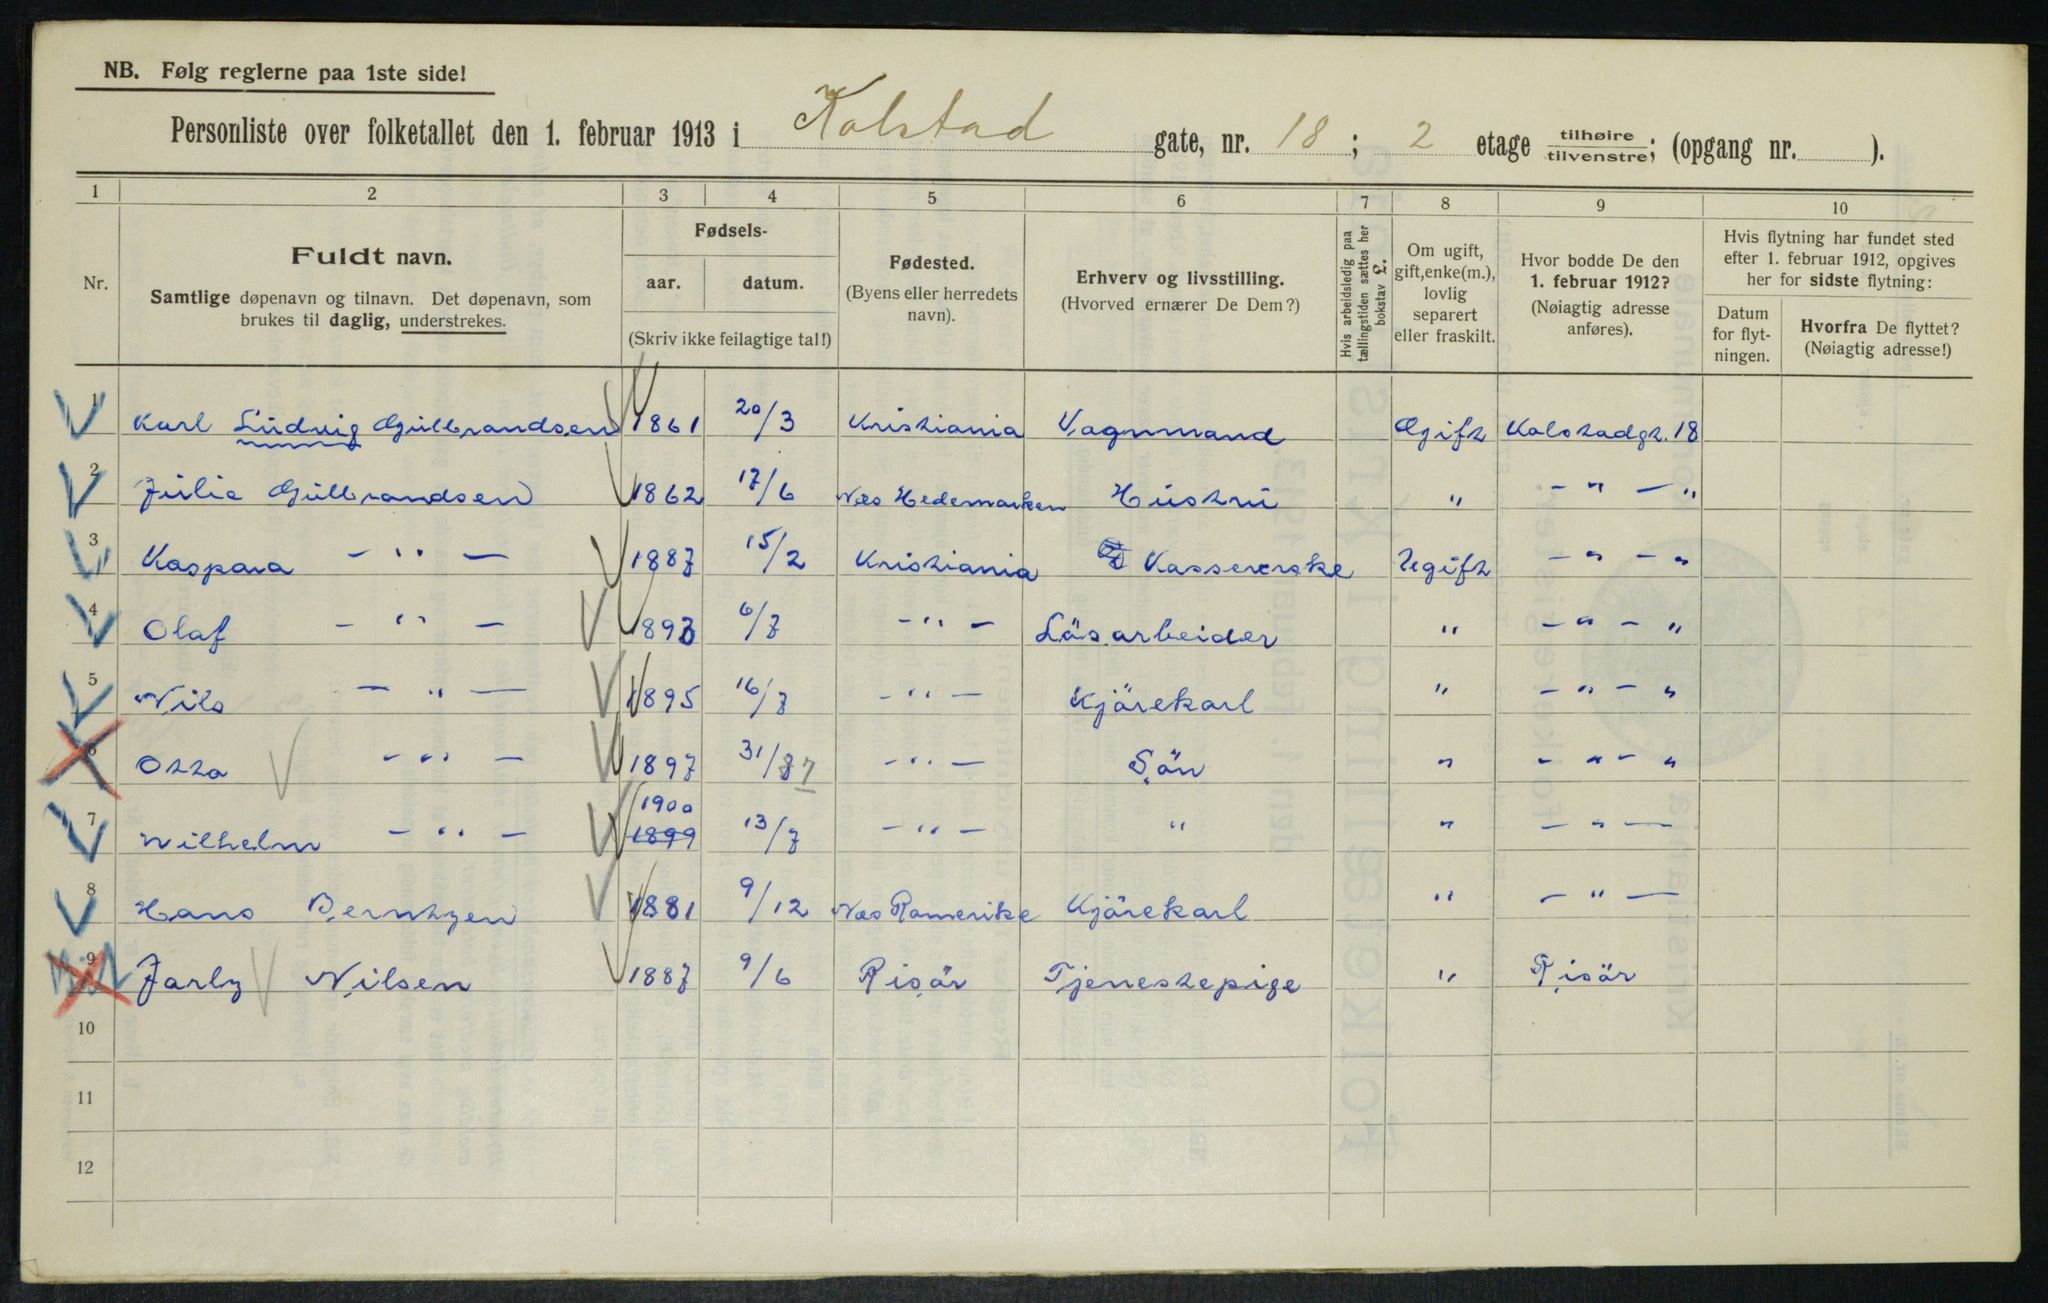 NB. Følg reglerne paa 1ste side!
Personliste over folketallet den 1. februar 1913 i Kolstad gate, nr. 18; 2 etage tilhøire/tilvenstre; (opgang nr. ).
1 2 3 4 5 6 7 8 9 10
Nr.
Fuldt navn.
Samtlige døpenavn og tilnavn. Det døpenavn, som
brukes til daglig, understrekes.
Fødsels-
aar. datum.
(Skriv ikke feilagtige tal!)
Fødested.
(Byens eller herredets
navn).
Erhverv og livsstilling.
(Hvorved ernærer De Dem?)
Hvis arbeidsledig paa
tællingstiden sættes her
bokstav L.
Om ugift,
gift, enke(m.),
lovlig
separert
eller fraskilt.
Hvor bodde De den
1. februar 1912?
(Nøiagtig adresse
anføres).
Hvis flytning har fundet sted
efter 1. februar 1912, opgives
her for sidste flytning:
Datum
for flyt-
ningen.
Hvorfra De flyttet?
(Nøiagtig adresse!)
1 Karl Ludvig Gulbrandsen 1861 20/3 Kristiania Vognmand Gift Kolstadgt. 18
2 Julie Gulbrandsen 1862 17/6 Næs Hedemarken Hustru " - " - "
3 Kaspara - " - 1887 15/2 Kristiania Kassererske Ugift - " - "
4 Olaf - " - 1893 6/7 - " - Løsarbeider " - " - "
5 Nils - " - 1895 16/7 - " - Kjørekarl " - " - "
6 Otto - " - 1897 31/7 - " - Søn " - " - "
7 Wilhelm - " - 1900 1899 13/7 - " - " " - " -
8 Hans Berntzen 1881 9/12 Næs Romerike Kjørekarl " - " -
9 Jarly Nilsen 1887 9/6 Risør Tjenestepige " Risør
10
11
12